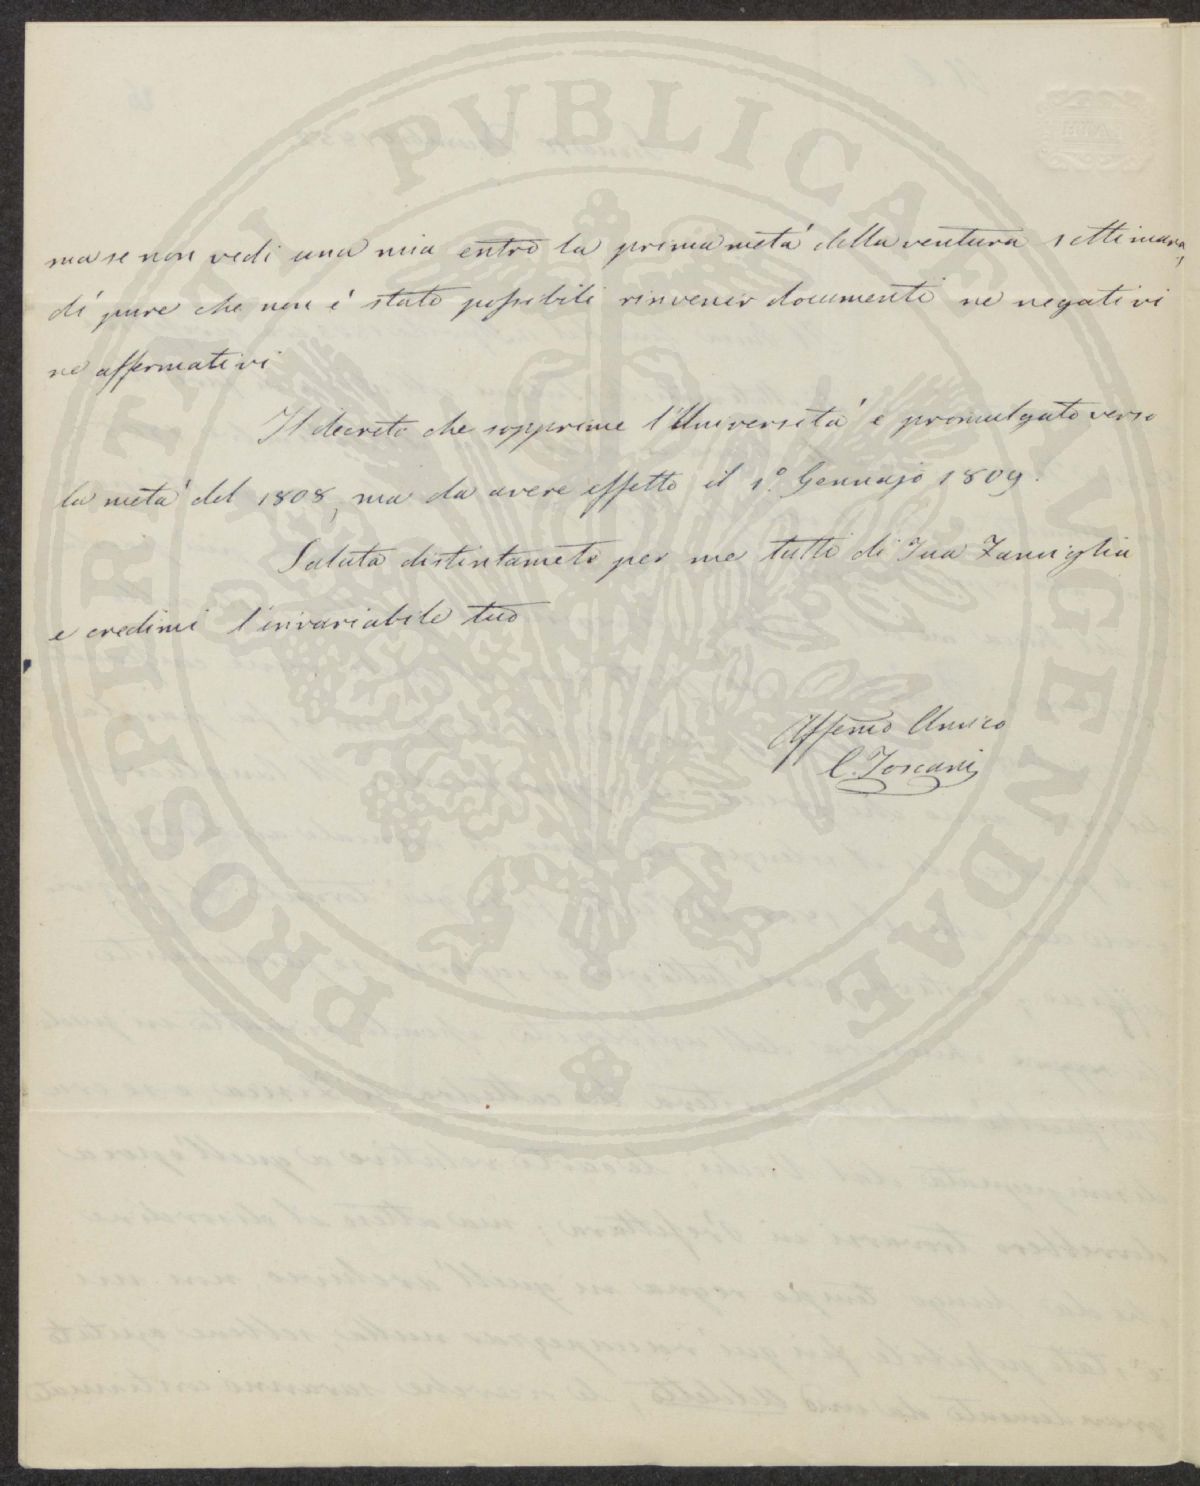 PROSPERITATI PVBLICAE AVGENDAE
ma se non vedi una mia entro la prima metà della ventura settimana,
di pure che non è stato possibile rinvenir documenti ne negativi
ne affermativi
Il decreto che sopprime l'Università e promulgato verso
la metà del 1808, ma da avere effetto il 1º Gennajo 1809.
Saluta distintamete per me tutti di Tua Famiglia
e credimi l'invariabile tuo
Affemo Amico
C. Toscani